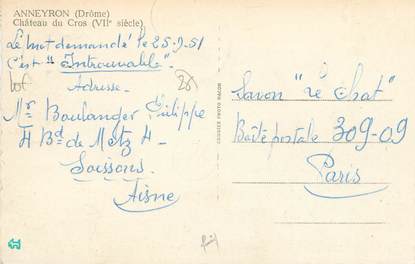 ANNEYRON (Drôme)
Château du Cros (VIIe siècle)
Le mot demandé le 25-9.51
C'est "Introuvable".
Adresse.
Mr Boulanger Philippe
4 Bd de Metz 4
Soissons.
Aisne
Savon "Le Chat"
Boîte postale 309-09
Paris